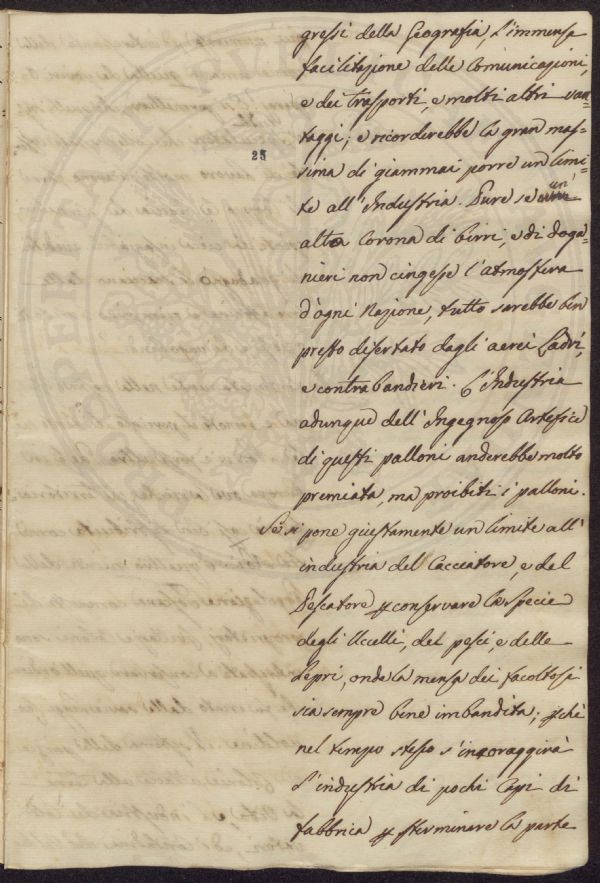 gressi della Geografia, l'immensa
facilitazione delle Comunicazioni,
e dei trasporti, e molti altri van-
taggi; e ricorderebbe la gran mas-
25
sima di giammai porre un limi-
te all'Industria. Pure se un'
altra Corona di birri, e di doga-
nieri non cingesse l'atmosfera
d'ogni Nazione, tutto sarebbe ben
presto disertato dagli aerei Ladri,
e contrabandieri. L'Industria
adunque dell'Ingegnoso Artefice
di questi palloni anderebbe molto
premiata, ma proibiti i palloni.
Se si pone giustamente un limite all'
industria del Cacciatore, e del
Pescatore p conservare la specie
degli Uccelli, dei pesci, e delle
Lepri, onde la mensa dei facoltosi
sia sempre bene imbandita; pchè
nel tempo stesso s'incoraggirà
l'industria di pochi Capi di
fabbrica p sterminare la parte